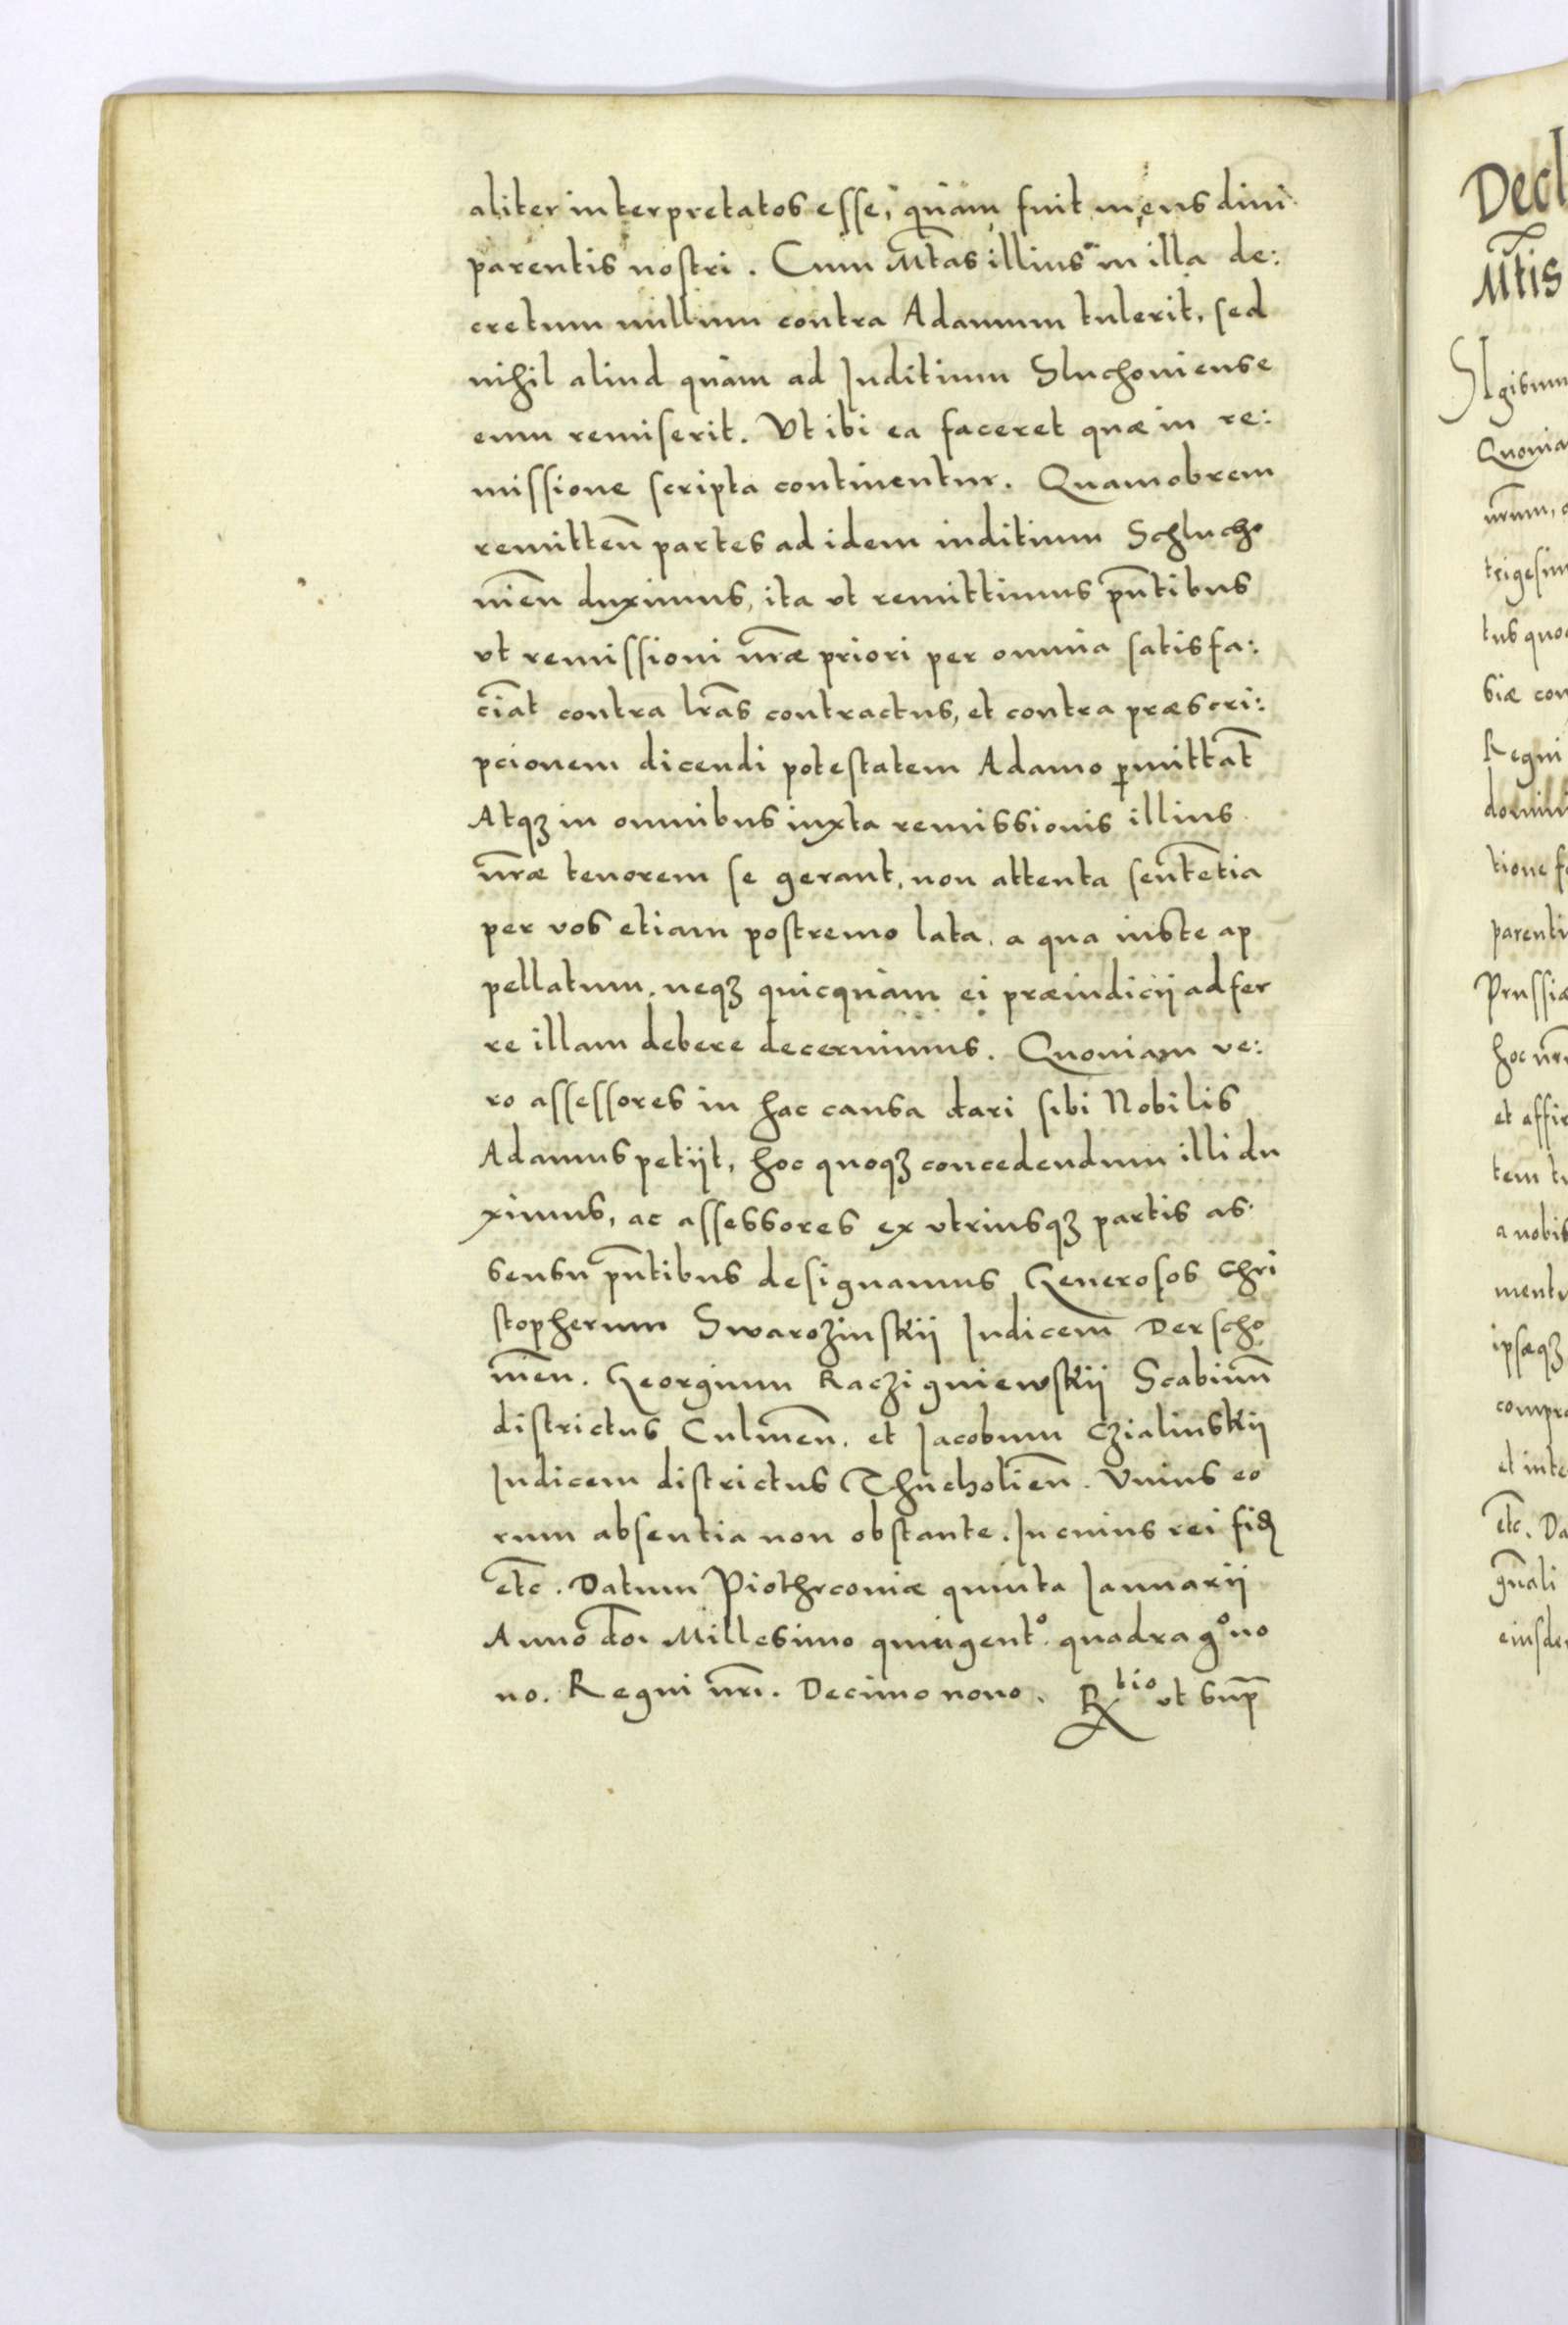 aliter interpretatos esse, quàm fuit mens diui
parentis nostri. Cum Mt̃as illius in illa de:
cretum nullum contra Adamum tulerit, sed
nihil aliud quàm ad Juditium Sluchouiense
eum remiserit. Vt ibi ea faceret quæ in re:
missione scripta continentur. Quamobrem
remitteñ partes ad idem iuditium Schlucho
uieñ duximus, ita vt remittimus pñtibus
vt remissioni nr̃æ priori per omnia satisfa:
ciãt contra lr̃as contractus, et contra præscri:
pcionem dicendi potestatem Adamo ꝑmittãt
Atqꝫ in omnibus iuxta remissionis illius
nr̃æ tenorem se gerant, non attenta senteñtia
per vos etiam postremo lata. a qua iuste ap
pellatum. neqꝫ quicquàm ei præiudicij adfer
re illam debere decernimus. Quoniam ve:
ro assessores in hac causa dari sibi Nobilis
Adamus petijt, hoc quoqꝫ concedendum illi du
ximus, ac assessores ex vtriusqꝫ partis as
sensu pñtibus designamus Generosos Chri
stopherum Swarozinskij Judicem Derscho
uieñ. Georgium Raczigniewskij Scabinũ
districtus Culmeñ. et Jacobum Czialinskij
Judicem districtus Thucholieñ. Vnius eo
rum absentia non obstante. In cuius rei fid
etc̃. Datum Piothrcouiæ quinta Januarij
Anno dõi Millesimo quingentº. quadragº no
no. Regni nr̃i. Decimo nono. R tio vt sup̃
Decl
Mt̃is
SIgismu
Quonia
nr̃um,
trigesim
tus quo
siæ con
Regni
domin
tione f
parenti
Prussiæ
hoc nr̃
et affir
tem t
a nobis
ment
ipsæqꝫ
compr
et inte
etc̃. Da
gñali
eiusde